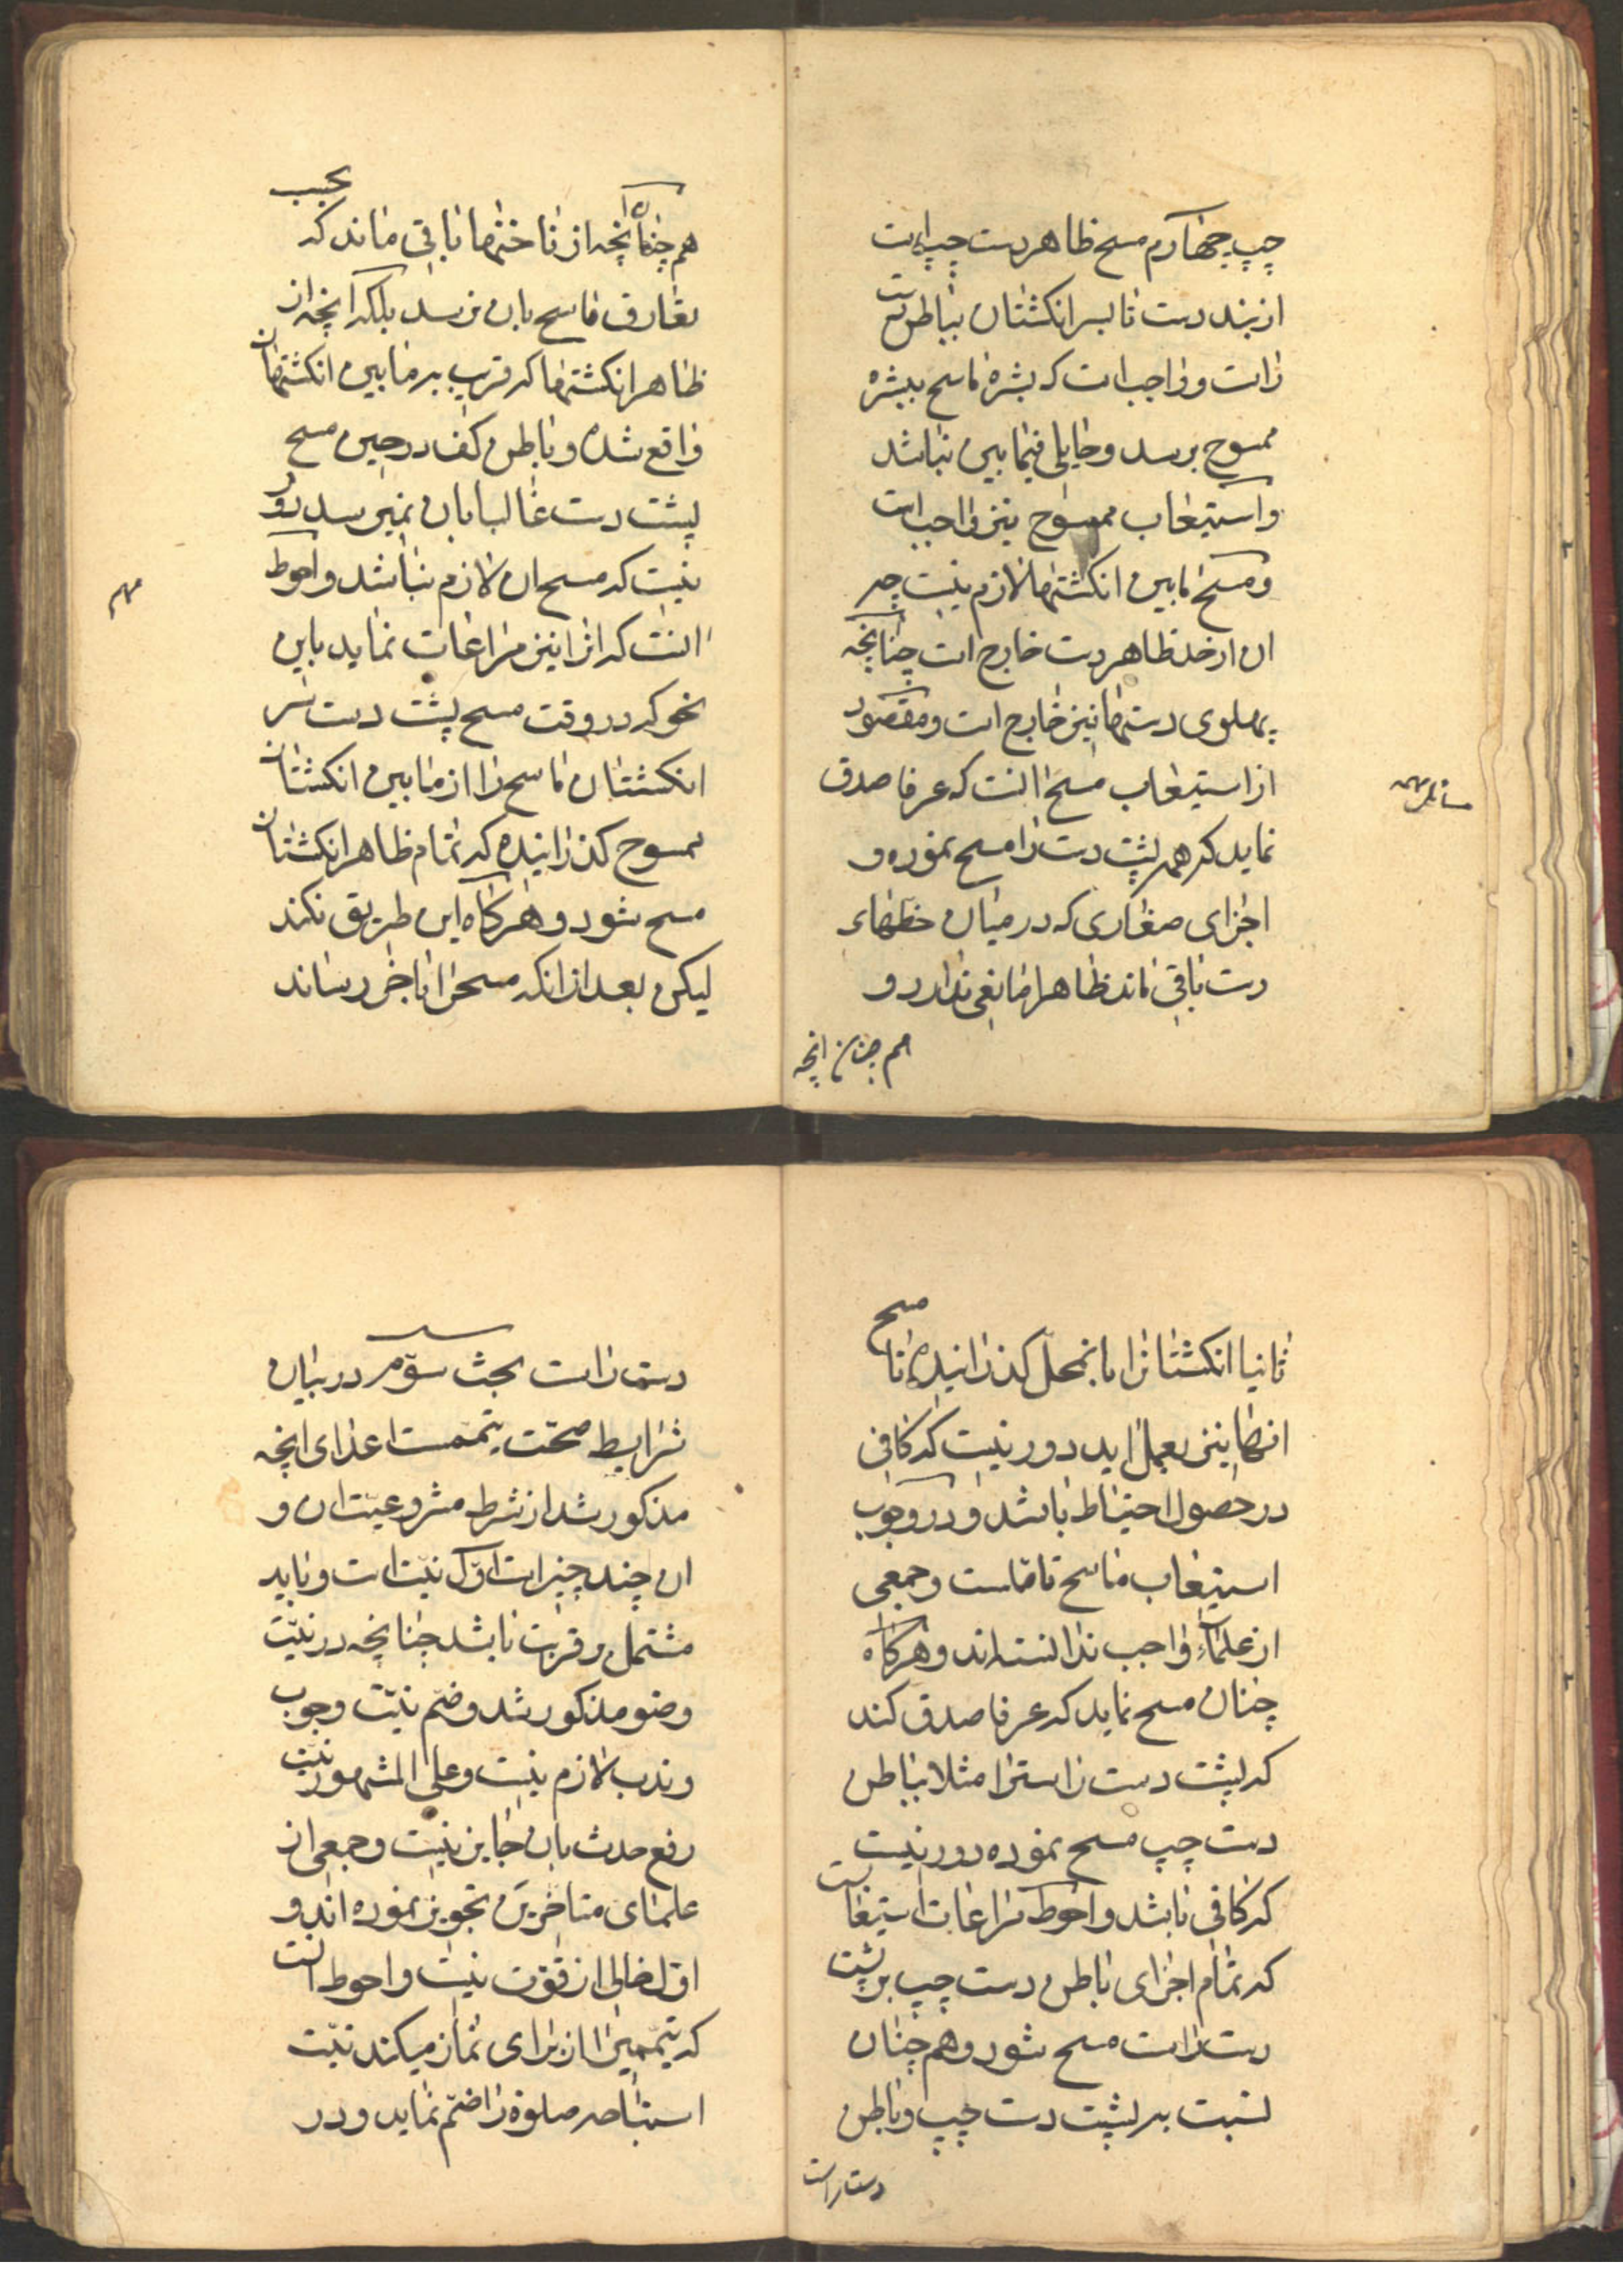 چپ چهارم مسح ظاهر دست چپ است
از بند دست تا بسر انکشتان بباطن دست
راست و واجب است که بشرهٔ ماسح ببشره
ممسوح برسد و حایلی فیمابین نباشد
و استیعاب ممسوح نیز واجب است
و مسح مابین انکشتها لازم نیست چه
ان از حد ظاهر دست خارج است چنانچه
پهلوی دستها نیز خارج است و مقصود
از استیعاب مسح انست که عرفا صدق
نماید که همه پشت دست را مسح نموده و
اجزای صغاری که در میان خطهاء
دست باقی ماند ظاهرا مانعی ندارد و
هم چنان انچه
هم چنان انچه از ناخنها باقی ماند که بحسب
تعارف ماسح بان نرسد بلکه انچه از
ظاهر انکشتها که قریب به مابین انکشتهان
واقع شده و باطن کف در حین مسح
پشت دست غالبا بان نمیرسد دور
نیست که مسح ان لازم نباشد و احوط
انست که انرا نیز مراعات نماید باین
نحو که در وقت مسح پشت دست سر
انکشتان ماسح را از مابین انکشتان
ممسوح کذرانیده که تمام ظاهر انکشتان
مسح شود و هرکاه این طریق نکند
لیکن بعد از انکه مسحرا باخر رساند
مهم
ثانیا انکشتانرا بانمحل کذرانیده تا مسح
انها نیز بعمل اید دور نیست که کافی
در حصول احتیاط باشد و در وجوب
استیعاب ماسح تامّلست و جمعی
از علماء واجب ندانسته اند و هرکاه
چنان مسح نماید که عرفا صدق کند
که پشت دست راسترا مثلا بباطن
دست چپ مسح نموده دور نیست
که کافی باشد و احوط مراعات استیعابست
که تمام اجزای باطن دست چپ بر پشت
دست راست مسح شود و هم چنان
نسبت به پشت دست چپ و باطن
دست راست
دست راست بحث سوّم در بیان
شرایط صحّت تیمّمست اعدای انچه
مذکور شد از شرط مشروعیّت ان و
ان چند چیز است اوّل نیّت است و باید
مشتمل بر قربت باشد چنانچه در نیّت
وضو مذکور شد و ضمّ نیّت وجوب
و ندب لازم نیست و علی المشهور نیّت
رفع حدث بان جایز نیست و جمعی از
علمای متاخّرین تجویز نموده اند و
اول خالی از قوّت نیست و احوط انست
که تیمّمیرا که از برای نماز میکند نیّت
استباحه صلوة را ضمّ نماید و در